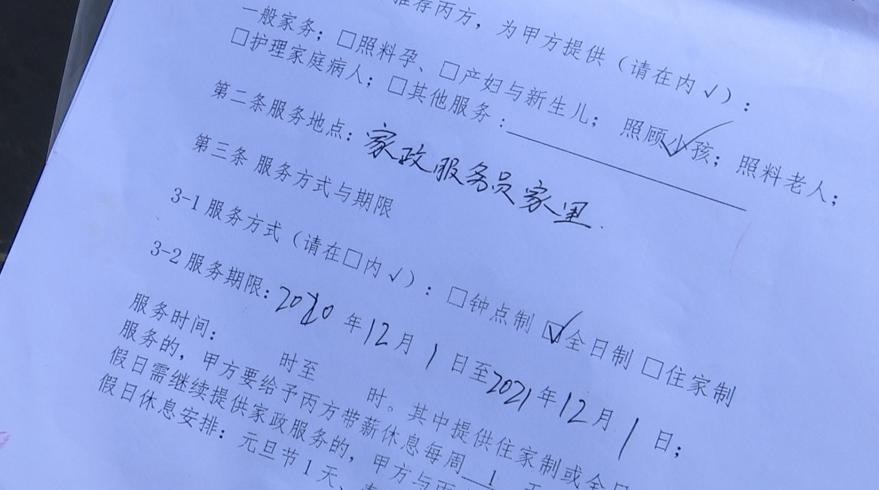 推荐丙方，为甲方提供（请在内√）：
一般家务；□照料孕、□产妇与新生儿； 照顾小孩；照料老人；
□护理家庭病人；□其他服务：
第二条服务地点：家政服务员家里.
第三条 服务方式与期限
3-1 服务方式（请在□内√）：□钟点制 ☑全日制 □住家制
3-2 服务期限：2020 年 12 月 1 日至 2021 年 12 月 1 日；
服务时间： 时至 时。其中提供住家制或全日
服务的，甲方要给予丙方带薪休息每周 1 天
假日需继续提供家政服务的，甲方与丙
假日休息安排：元旦节1天、